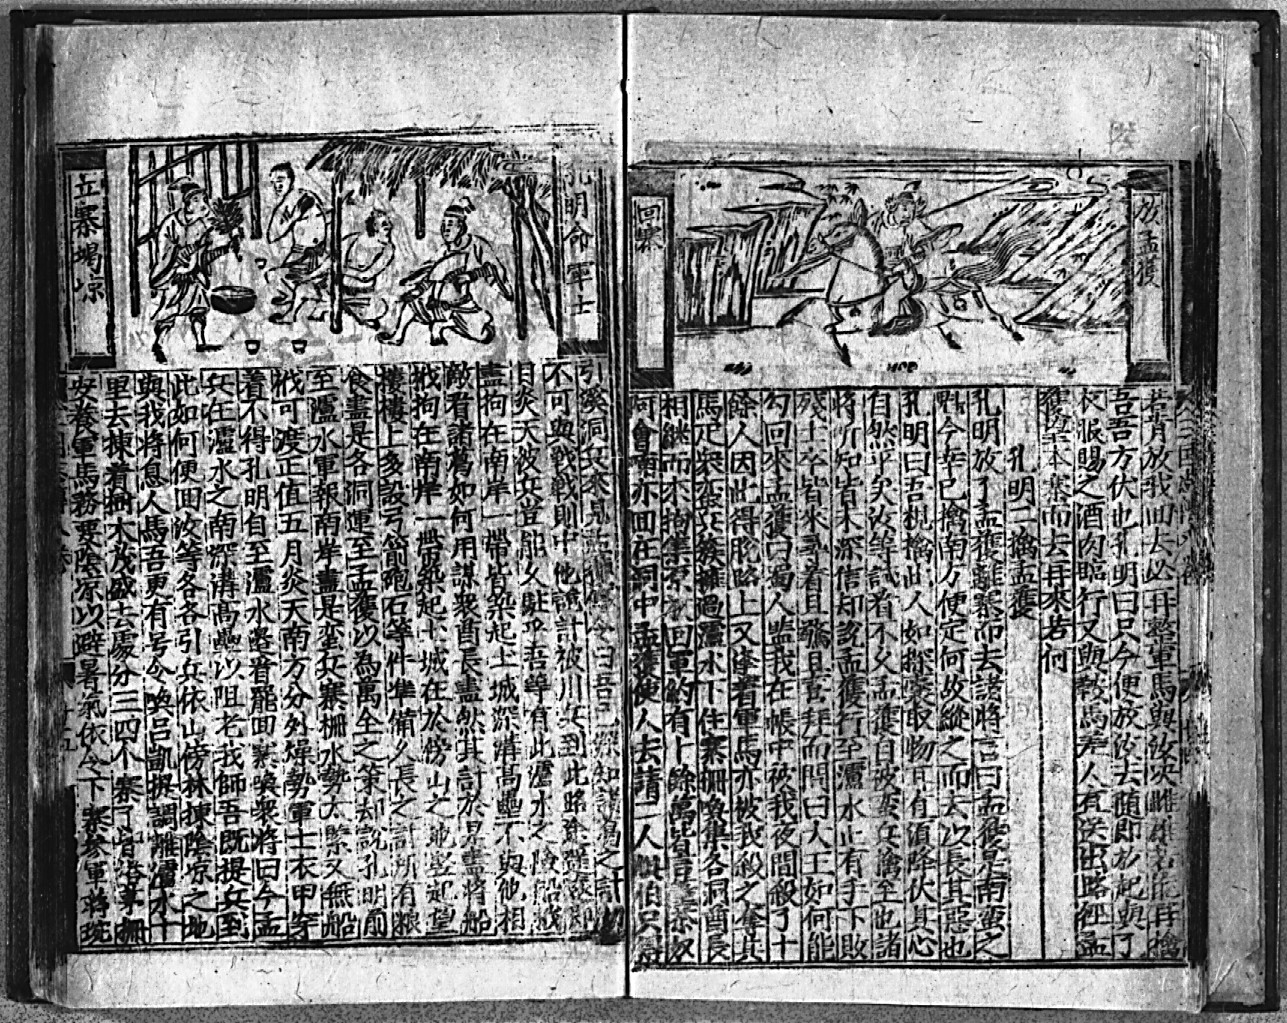 放孟獲
回寨
若肯放我回去必再整軍馬與汝決雌雄若能再擒
吾吾方伏也孔明曰只今便放汝去随即放起與了
衣服賜之酒肉臨行又與鞍馬差人有送出路徑孟
獲望本寨而去再來若何
孔明二擒孟獲
孔明放了孟獲離寨而去諸將言曰孟獲是南蛮之
魁今幸已擒南方便定何故縱之而去以長其惡也
孔明曰吾視擒此人如探囊取物耳有須降伏其心
自然平矣汝等試看不久孟獲自被蛮兵擒至也諸
將聞知皆未深信却說孟獲行至瀘水正有手下敗
残士卒皆來尋着且驚且喜拜而問曰大王如何能
勾回來孟獲曰蜀人監我在帳中被我夜間殺了十
餘人因此得脫路上又逢着軍馬亦被我殺之奪其
馬疋衆亦簇擁過瀘水下住寨柵喚集各洞酋長
相継而來拘集原放回軍約有十餘萬皆
何會喃亦回在洞中孟獲使人去請二人懼怕只得
孔明命軍士
立寨揭凉
引溪洞兵來見孟獲傳令曰吾已深知諸葛之計
不可與戰戰則中他詭計被川兵到此路途
日炎天彼兵豈能久駐乎吾等有此瀘水之險船筏
盡拘在南岸一帶皆築起土城深溝高壘不與他相
敵看諸葛如何用謀衆酋長盡然其計於是盡將船
筏拘在南岸一帶築起土城在於傍山之地竪起望
樓樓上多設弓箭砲石等件準備久長之計所有粮
食盡是各洞運至孟獲以為萬全之策却說孔明前
至瀘水軍報南岸盡是蛮兵寨柵水勢太緊又無船
筏可渡正值五月炎天南方分外燥熱軍士衣甲穿
着不得孔明自至瀘水邊看罷回寨喚衆將曰今孟
兵在瀘水之南深溝高壘以阻老我師吾既提兵到
此如何便回汝等各各引兵依山傍林揀陰凉之地
與我將息人馬吾更有号令喚呂凱提調離瀘水十
里去揀着樹木茂盛去處分三四个寨
安養軍馬務要陰凉以避暑氣依令下寨參軍蔣琬